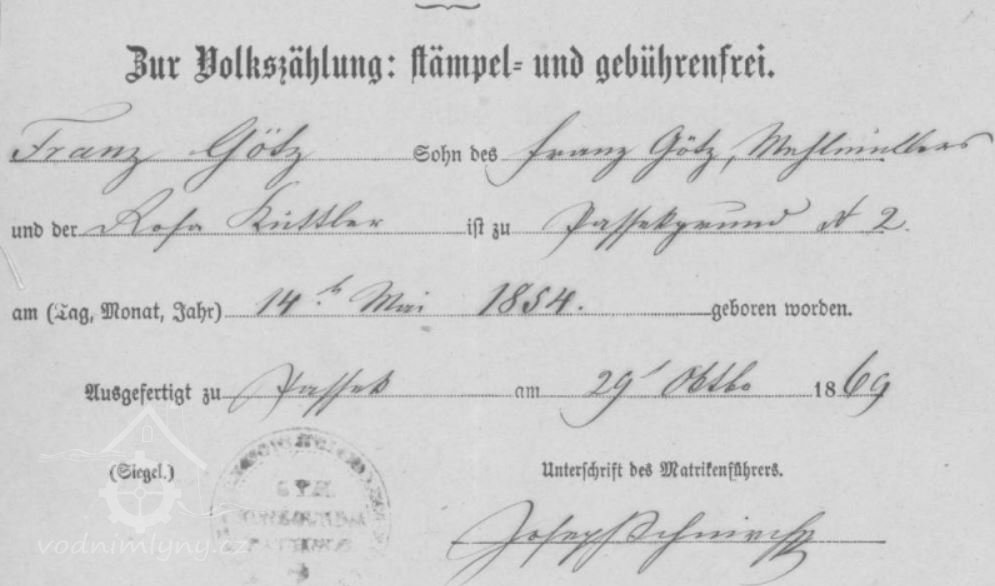 Zur Volkszählung: stämpel- und gebührenfrei.
Franz Götz Sohn des Franz Götz, Mehlmüllers
und der Rosa Kuttler ist zu Passekgrund N 2.
am (Tag, Monat, Jahr) 14. Mai 1854. geboren worden.
Ausgefertigt zu Passek am 29 Oktbr 1869
(Siegel.) Unterschrift des Matrikenführers.
Joseph
vodnimlyny.cz